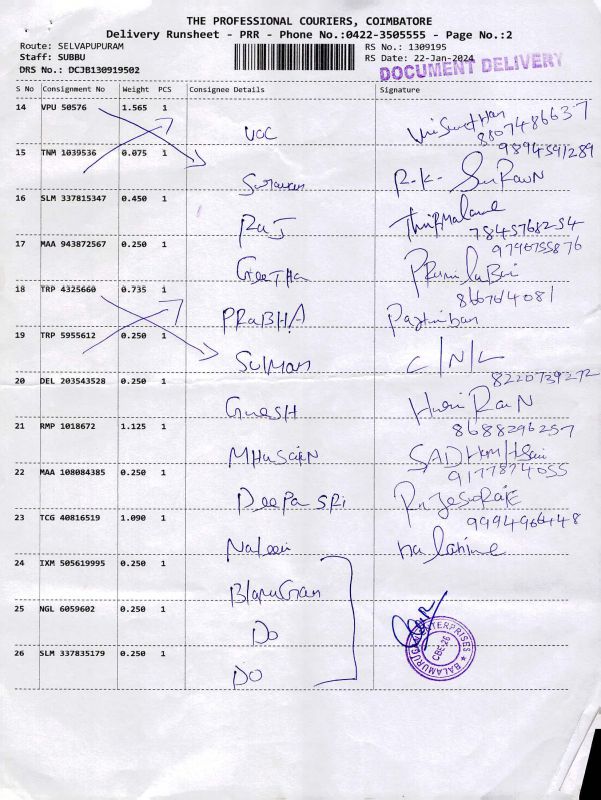 THE PROFESSIONAL COURIERS, COIMBATORE
Delivery Runsheet - PRR - Phone No.:0422-3505555 - Page No.:2
Route: SELVAPUPURAM RS No.: 1309195
Staff: SUBBU RS Date: 22-Jan-2024
DRS No.: DCJB130919502 DOCUMENT DELIVERY
S No Consignment No Weight PCS Consignee Details Signature
14 VPU 50576 1.565 1
VOC 8807486637
15 TNM 1039536 0.075 1 9894591289
R.K.
16 SLM 337815347 0.450 1
RaJ 7845768254
17 MAA 943872567 0.250 1 9790755876
GeeTHa
18 TRP 4325660 0.735 1 866764081
PRaBHA
19 TRP 5955612 0.250 1
SuMan C/N/L
20 DEL 203543528 0.250 1 8220739272
GneSH Hari
21 RMP 1018672 1.125 1 8688296257
MHusaiN
22 MAA 108084385 0.250 1 9177874055
DeePa SRi
23 TCG 40816519 1.090 1 9994966448
24 IXM 505619995 0.250 1
25 NGL 6059602 0.250 1
Do
26 SLM 337835179 0.250 1
DO
BALAMURUGAN ENTERPRISES
CBE-26